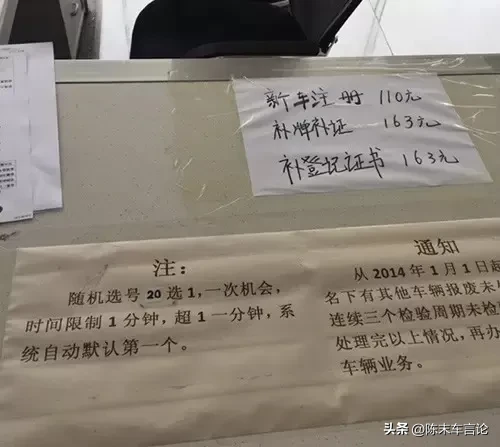 新车注册 110元
补牌补证 163元
补登记证书 163元
注：
随机选号 20 选 1，一次机会，
时间限制 1 分钟，超 1 一分钟，系
统自动默认第一个。
通知
从 2014 年 1 月 1 日起
名下有其他车辆报废未
连续三个检验周期未检
处理完以上情况，再办
车辆业务。
头条 @陈末车言论